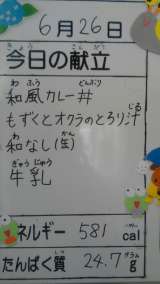 6月26日
きょうのこんだて
今日の献立
わふう どんぶり
和風カレー丼
じる
もずくとオクラのとろり汁
わ かん
和なし(缶)
ぎゅうにゅう
牛乳
ネルギー 581 cal
たんぱく質 24.7 g